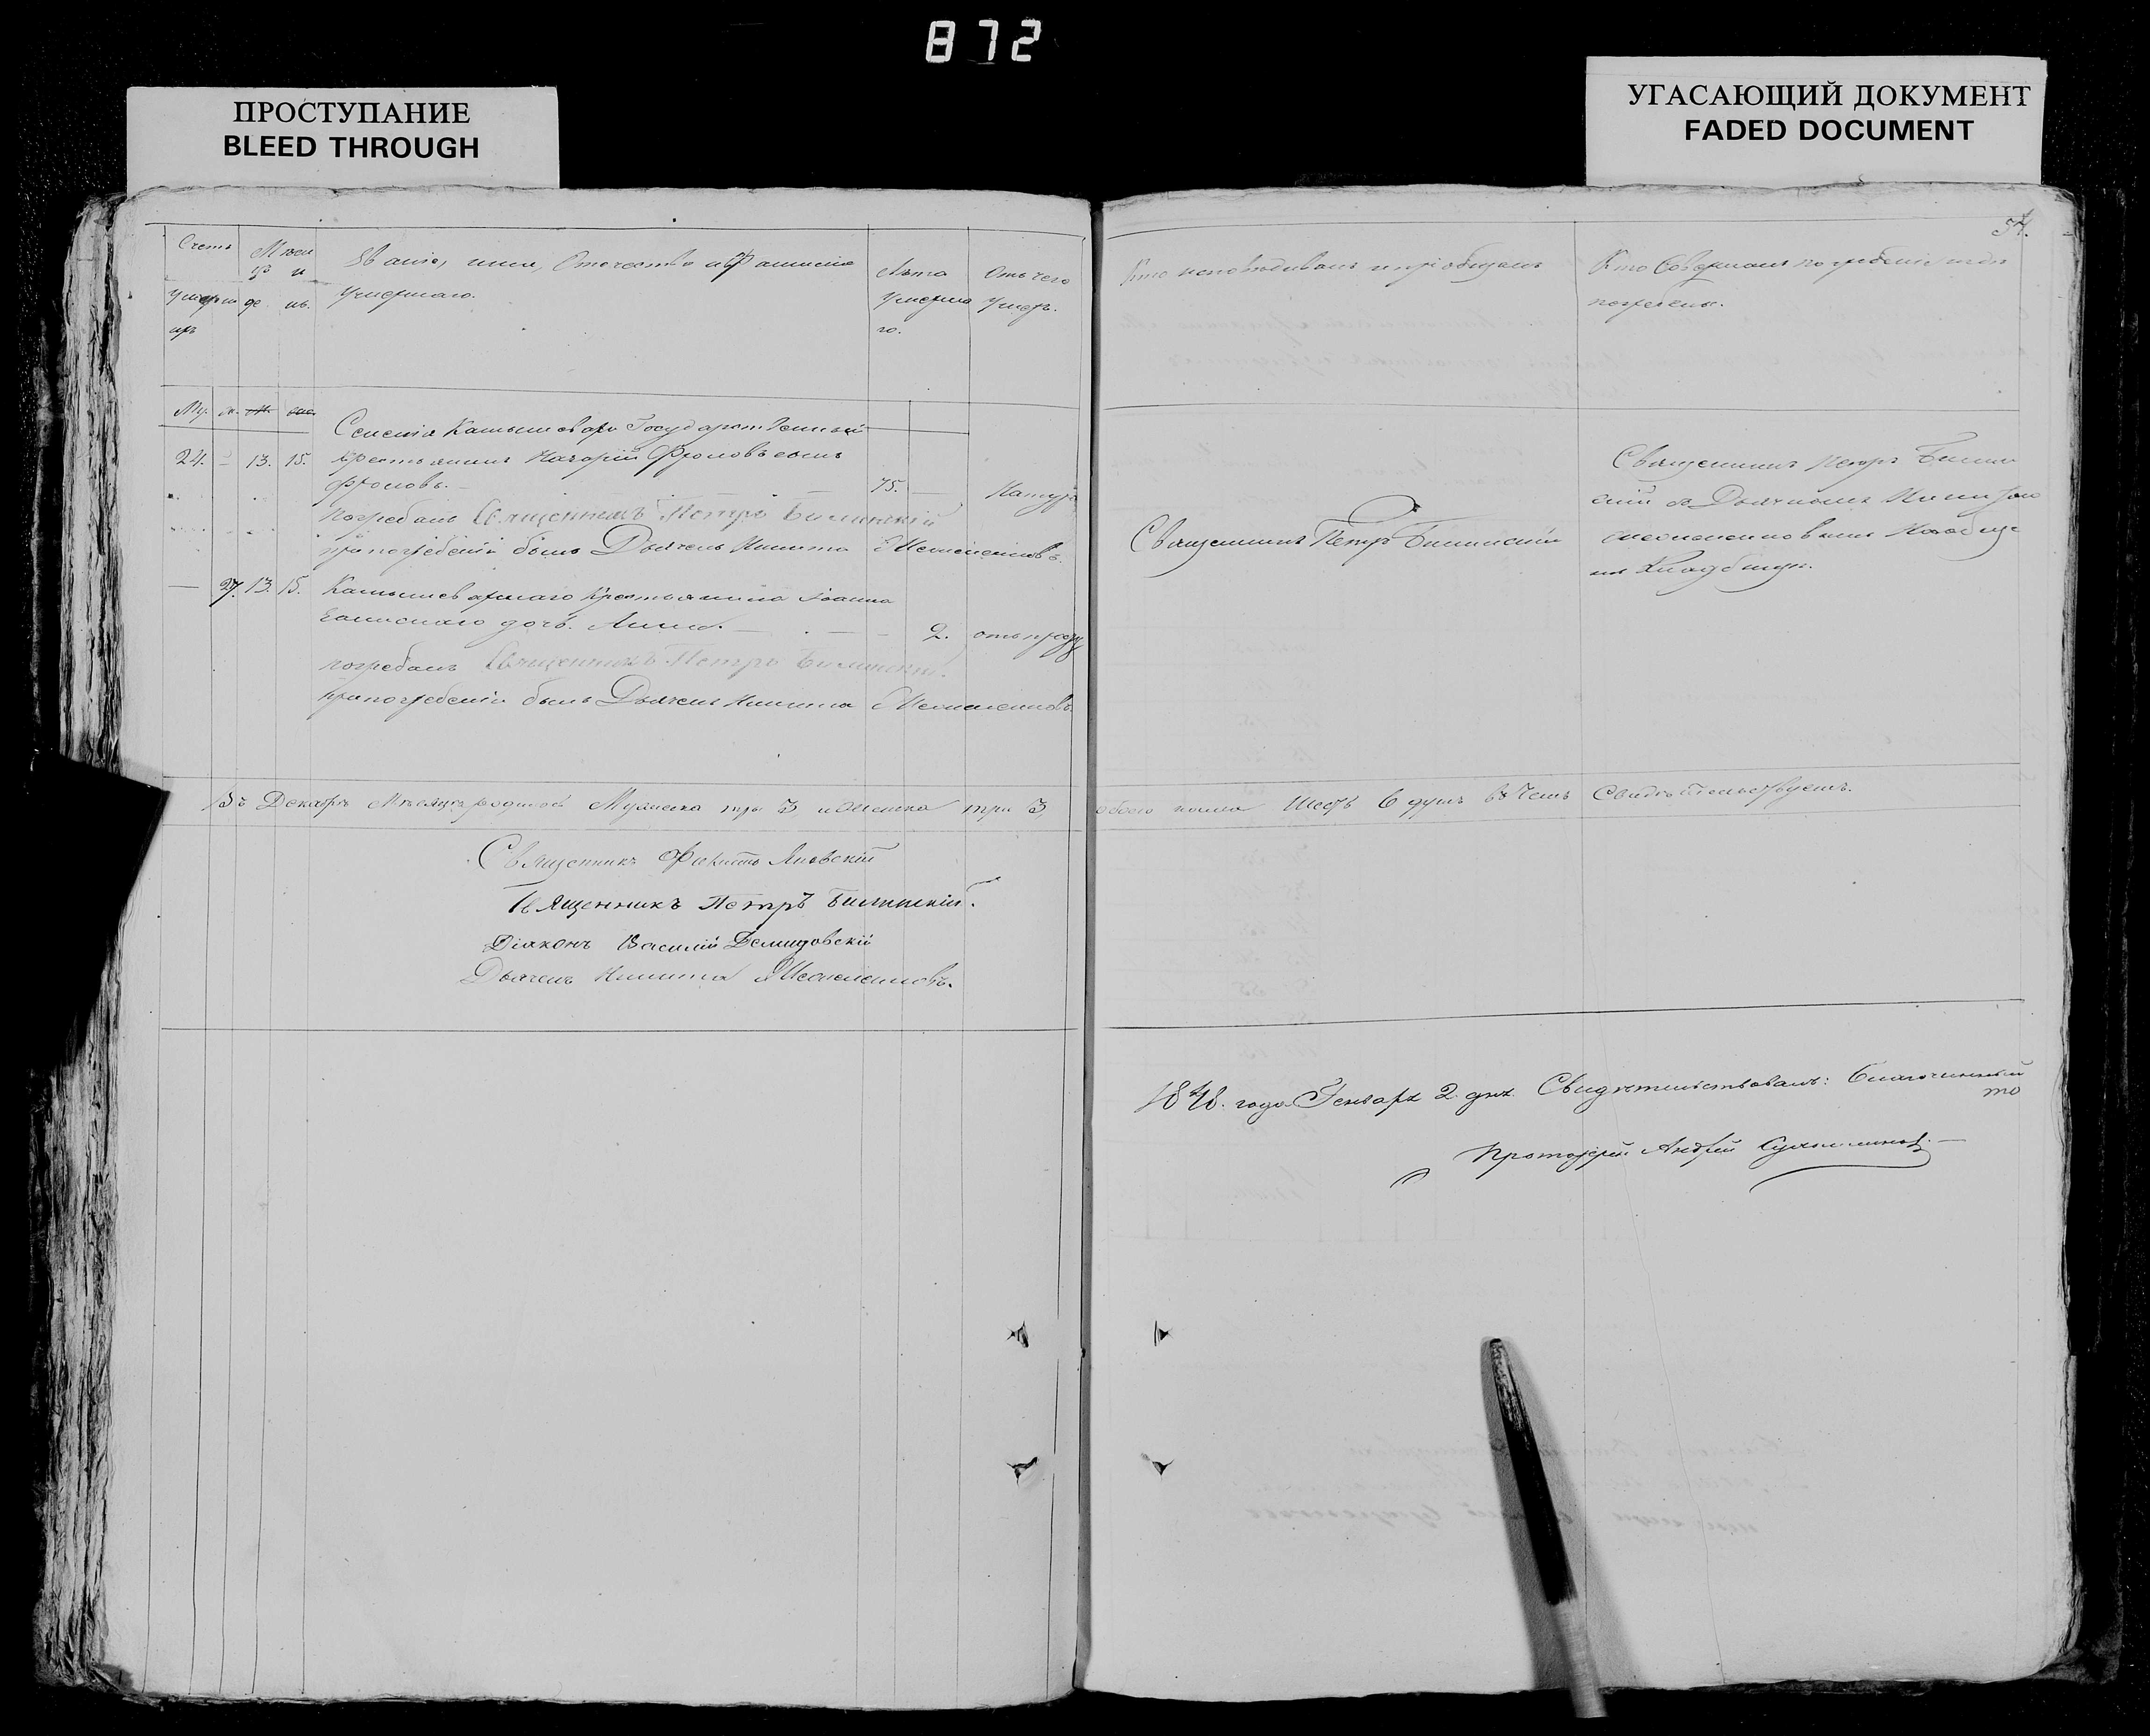 872
ПРОСТУПАНИЕ
BLEED THROUGH
УГАСАЮЩИЙ ДОКУМЕНТ
FADED DOCUMENT
54.
Счетъ
Умерш
ихъ
Мѣся
цъ и
де нь.
Званіе, имя, Отечество и Фамилія
Умершаго.
Лѣта
Умерша
го.
Отъ чего
Умеръ.
Кто исповѣдывалъ и пріобщалъ
Кто Совершалъ погребеніе и гдѣ
погребены.
Му. ж.
Селенія Камышевахи Государственный
24. - 13. 15. Крестьянинъ Назарій Фроловъ сынъ
Фроловъ. 75. Натур
погребалъ Священникъ Петръ Билинскій
при погребеніи былъ Дьячекъ Никита
Священникъ Петръ Билинскій
Священникъ Петръ Билин
скій съ Дьячкомъ Никитою
на Кладбищѣ.
— 27. 13. 15. Камышеватаго Крестьянина Іоанна
дочь Анна. 2. отъ
погребалъ Священникъ Петръ Билинскій.
при погребеніи былъ Дьячекъ Никита
Въ Декабрѣ Мѣсяцѣ родилось Мужеска три 3, и Женска три 3, обоего пола Шесть 6 душъ въ Чемъ Свидѣтельствуемъ.
Священникъ Яновскій
Священникъ Петръ Билинскій.
Діаконъ Василій Демидовскій
Дьячекъ Никита
1848. года Генваря 2. дня. Свидѣтельствовалъ: Благочинный
Протоіерей Андрей